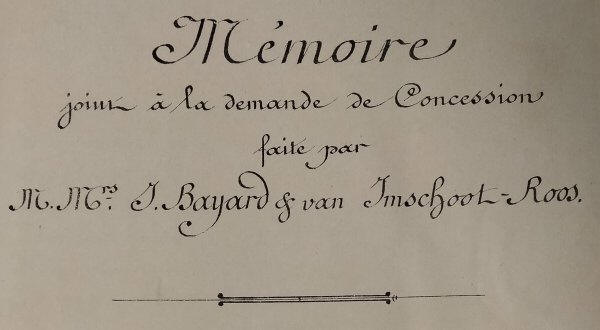 Mémoire
joint à la demande de Concession
faite par
M. Mrs. J. Bayard & van Imschoot-Roos.